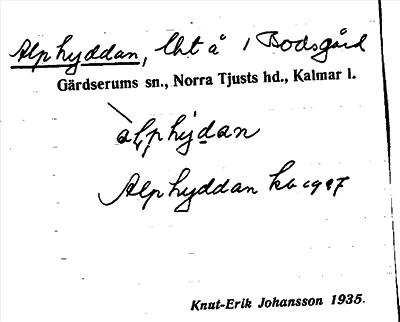 Alphyddan, lht å 1 Bodsgård
Gärdserums sn., Norra Tjusts hd., Kalmar l.
alphydan
Alphyddan kb 1927
Knut-Erik Johansson 1935.